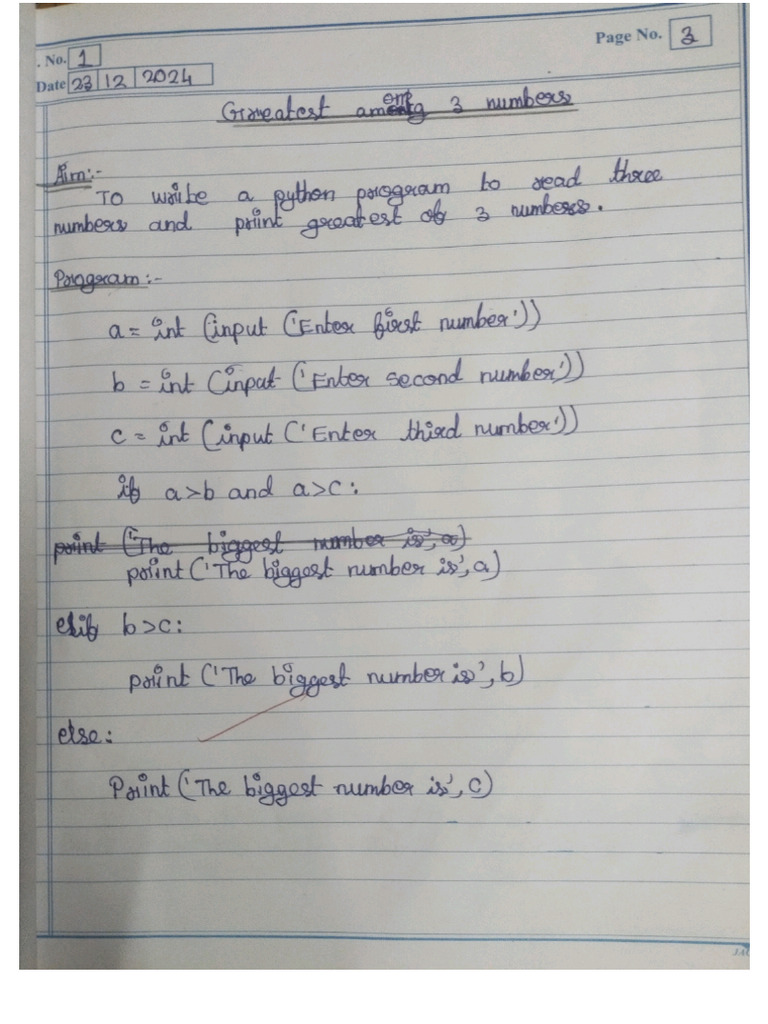 Page No. 3
. No. 1
Date 23 12 2024
Greatest among 3 numbers
Aim:-
To write a python program to read three
numbers and print greatest of 3 numbers.
Program:-
a = int (input ('Enter first number'))
b = int (input ('Enter second number'))
c = int (input ('Enter third number'))
if a>b and a>c:
print ('The biggest number is', a)
print ('The biggest number is', a)
elif b>c:
print ('The biggest number is', b)
else:
Print ('The biggest number is', c)